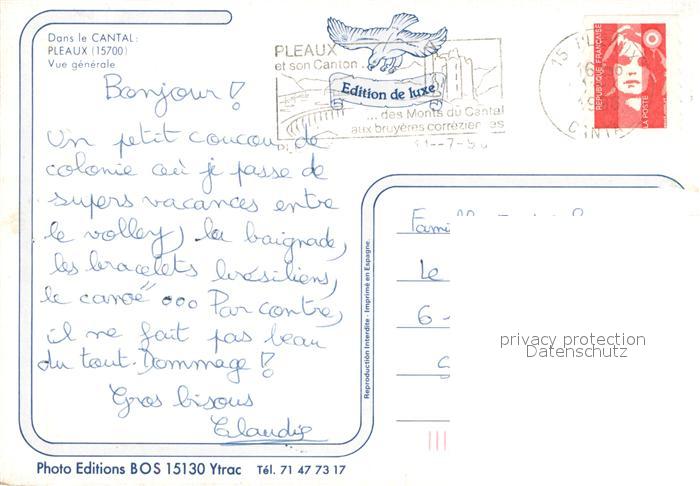 Dans le CANTAL:
PLEAUX (15700)
Vue générale
PLEAUX
et son Canton...
Edition de luxe
... des Monts du Cantal
aux bruyères corréziennes
REPUBLIQUE FRANÇAISE
LA POSTE
Bonjour!
Un petit coucou de
colonie où je passe de
supers vacances entre
le volley, la baignade,
les bracelets brésiliens,
le canoë ... Par contre,
il ne fait pas beau
du tout. Dommage!
Gros bisous
Claudie
Reproduction Interdite - Imprimé en Espagne.
Le
6
privacy protection
Datenschutz
Photo Editions BOS 15130 Ytrac Tél. 71 47 73 17